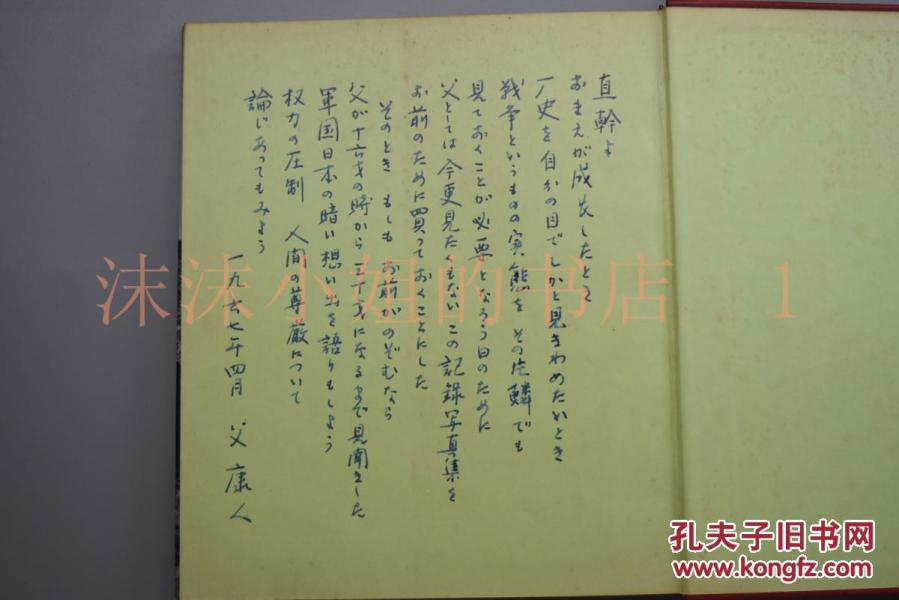 直幹よ
おまえが成長したとき
歴史を自分の目でしかと見きわめたいとき
戦争というものの実態を その片鱗でも
見ておくことが必要となろう日のために
父としては今更見たくもないこの記録写真集を
お前のために買っておくことにした
そのとき もしも お前がのぞむなら
父が十六才の時から二十才になるまで見聞きした
軍国日本の暗い想い出を語りもしよう
权力の圧制 人間の尊厳について
論じあってもみよう
一九六七年四月 父 康人
沫沫小姐的书店 1
孔夫子旧书网
www.kongfz.com